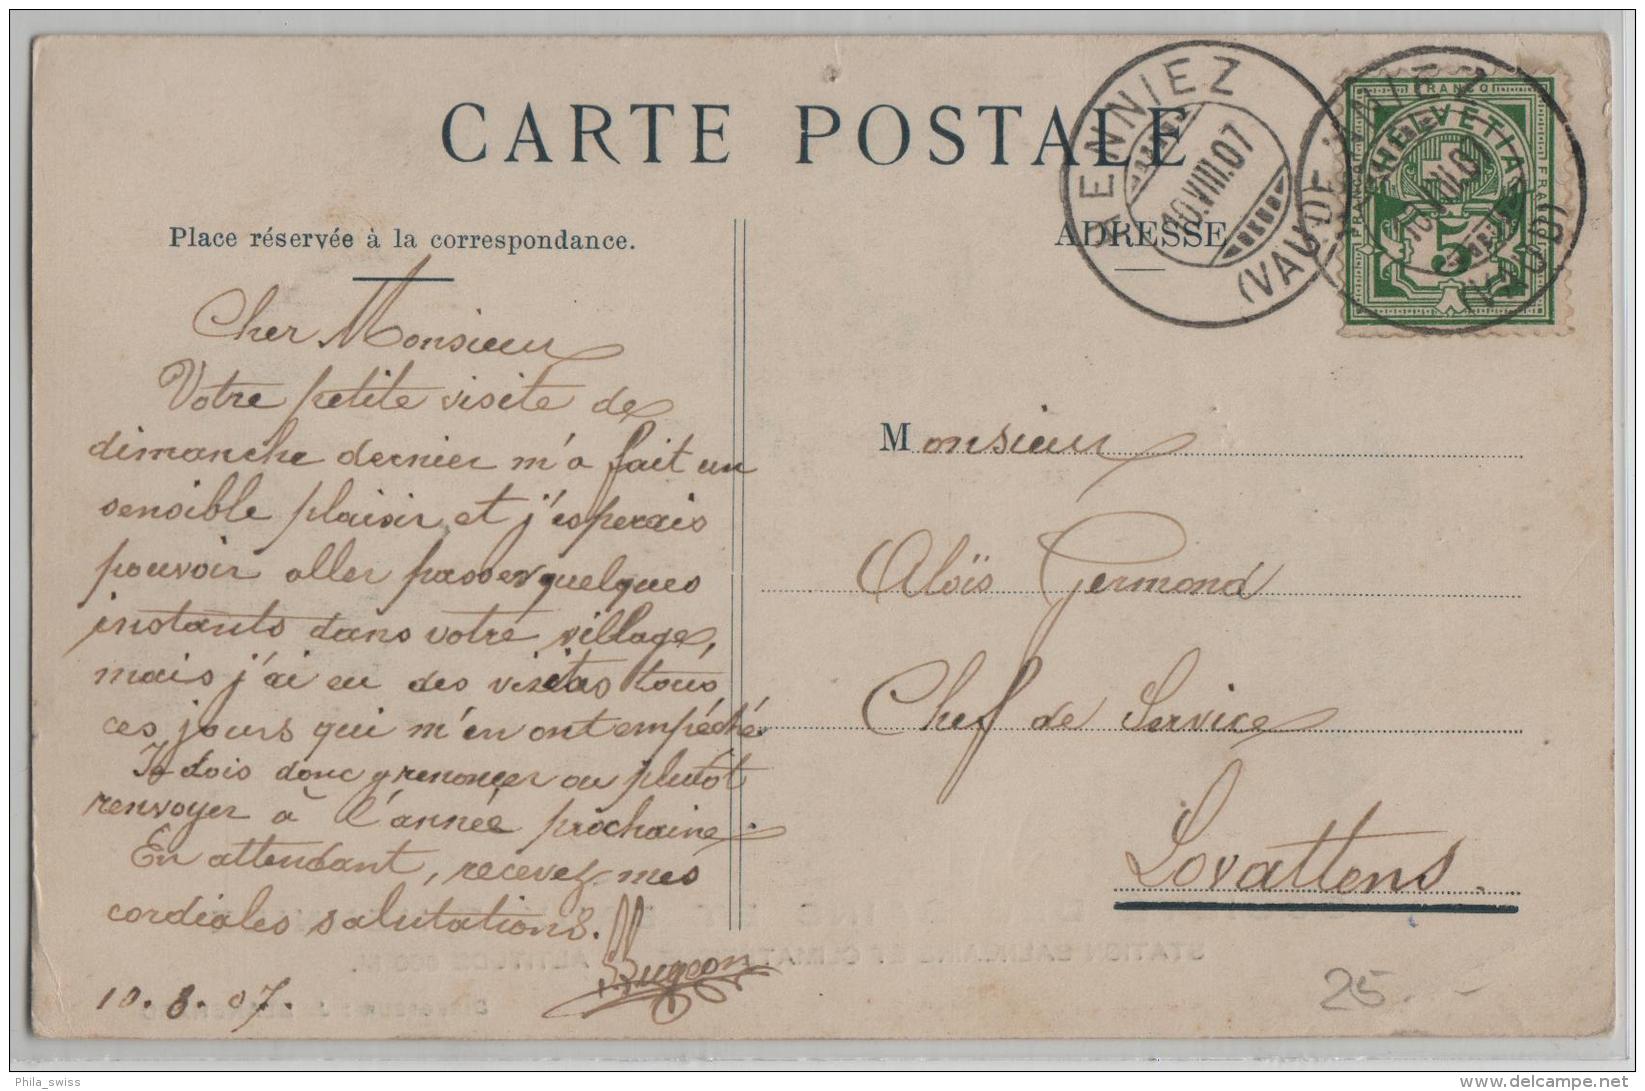 CARTE POSTALE
Place réservée à la correspondance.
ADRESSE
HENNIEZ
10.VIII.07
(VAUD)
HENNIEZ
10.VIII.07
(VAUD)
FRANCO
HELVETIA
FRANCO
FRANCO
5
Cher Monsieur
Votre petite visite de
dimanche dernier m'a fait un
sensible plaisir et j'esperais
pouvoir aller passer quelques
instants dans votre village,
mais j'ai eu des visites tous
ces jours qui m'en ont empéché.
Je dois donc y renoncer ou plutôt
renvoyer à l'année prochaine.
En attendant, recevez mes
cordiales salutations.
10.8.07.
Monsieur
Aloïs Germond
Chef de Service
Lovattens.
STATION BALNEAIRE ET CLIMAT ALTITUDE 600 M.
25.-
Phila_swiss
delcampe.net